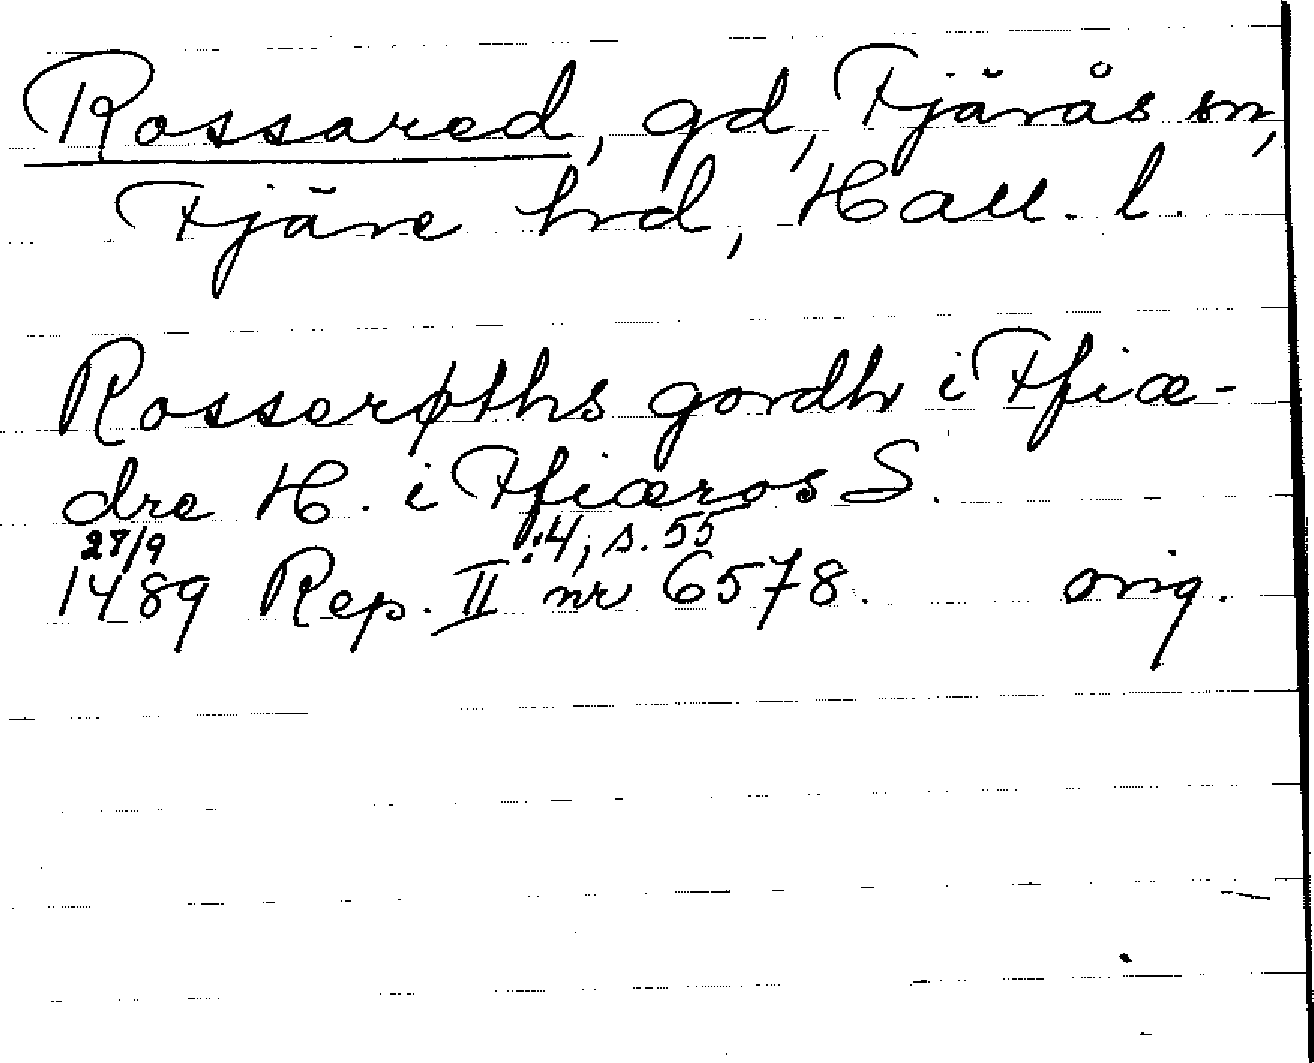 Rossared, gd, Fjärås sn,
Fjäre hrd, Hall. l.
Rosserøths gordh i Ffiæ-
dre H. i Ffiæros S.
27/9 :4, s. 55
1489 Rep. II nr 6578. orig.